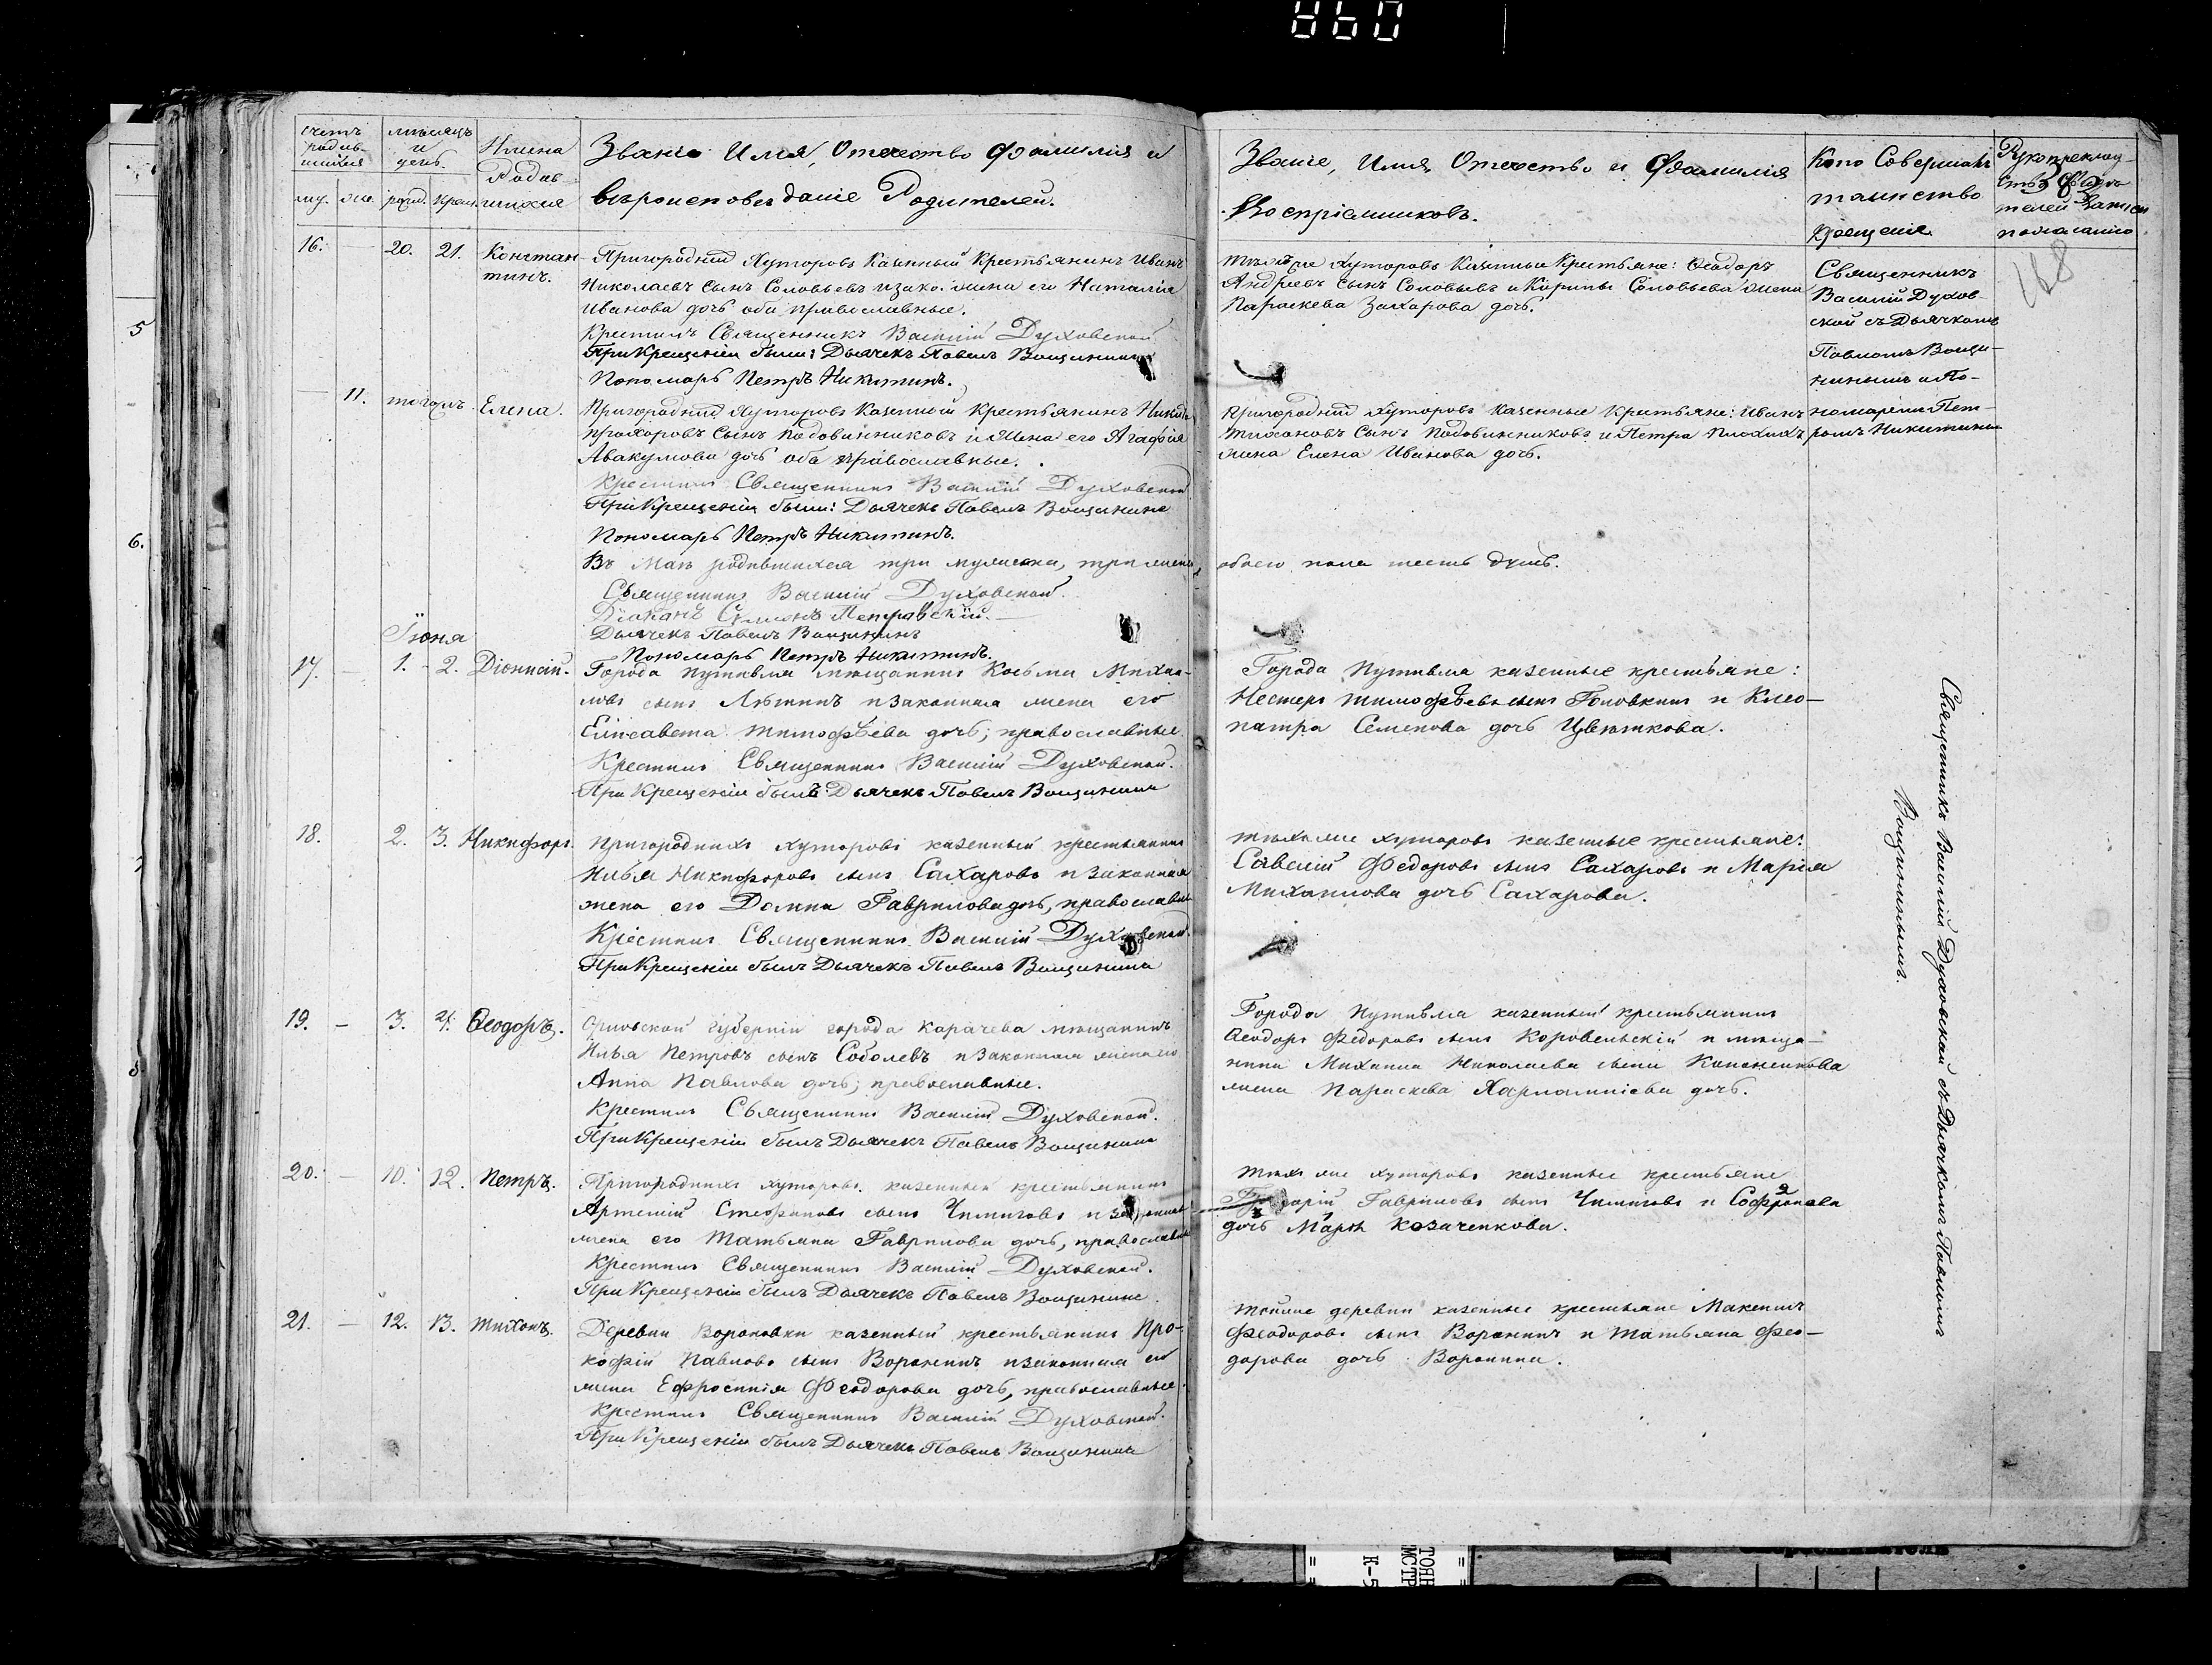 счетъ родив-шихся
мѣсяцъ и день.
Имена Родив-шихся
Званіе Имя, Отечество Фамилія и
вѣроисповѣданіе Родителей.
му. же. рожд. крещ.
16. — 20. 21. Констан-тинъ.
Пригородних Хуторовъ Казенный Крестьянинъ Иванъ
Николаевъ Сынъ Соловьевъ и зако. жена его Наталія
Иванова дочь оба православные.
Крестилъ Священникъ Василій Духовской
При Крещеніи были: Дьячекъ Павелъ Вощининъ
Пономарь Петръ Никитинъ.
— 11. тогожъ. Елена.
Пригородних Хуторовъ Казенной Крестьянинъ
Прохоровъ Сынъ Подовинниковъ и Жена его Агафія
Авакумова дочь оба православные.
Крестилъ Священникъ Василій Духовской
При Крещеніи были: Дьячекъ Павелъ Вощининъ
Пономарь Петръ Никитинъ.
Въ Маѣ родившихся три мужеска, три женска
Священникъ Василій Духовской.
Діаконъ Симеонъ Петровскій.
Дьячекъ Павелъ Вощининъ
Пономарь Петръ Никитинъ.
Іюня
17. — 1. 2. Діонисій.
Города Путивля мѣщанинъ Косьма Михаи-
ловъ сынъ Лѣтинъ и законная жена его
Елисавета Тимофѣева дочь; православные.
Крестилъ Священникъ Василій Духовской.
При Крещеніи былъ Дьячекъ Павелъ Вощининъ
18. 2. 3. Никифоръ.
Пригородныхъ хуторовъ казенный крестьянинъ
Илья Никифоровъ сынъ Сахаровъ и законная
жена его Домна Гаврилова дочь, православные
Крестилъ Священникъ Василій Духовской.
При Крещеніи былъ Дьячекъ Павелъ Вощининъ
19. — 3. 4. Ѳеодоръ.
Орловской губерніи города Карачева мѣщанинъ
Илья Петровъ сынъ Соболевъ и законная жена его
Анна Павлова дочь; православные.
Крестилъ Священникъ Василій Духовской.
При Крещеніи былъ Дьячекъ Павелъ Вощининъ
20. — 10. 12. Петръ.
Пригородныхъ хуторовъ казенный крестьянинъ
Артемій Стефановъ сынъ Чимиговъ и законная
жена его Татьяна Гаврилова дочь, православные
Крестилъ Священникъ Василій Духовской.
При Крещеніи былъ Дьячекъ Павелъ Вощининъ
21. — 12. 13. Тихонъ.
Деревни Вороновки казенный крестьянинъ Про-
кофій Павловъ сынъ Воронинъ и законная его
жена Ефросинія Феодорова дочь, православные.
Крестилъ Священникъ Василій Духовской.
При Крещеніи былъ Дьячекъ Павелъ Вощининъ
5
6.
Званіе, Имя Отечество и Фамилія
Воспріемниковъ.
Кто Совершалъ
таинство
Крещенія
168
Тѣхъ же Хуторовъ Казенные Крестьяне: Ѳеодоръ
Андреевъ Сынъ Соловьевъ и Кирилы Соловьева жена
Параскева Захарова дочь.
Священникъ
Василій Духов-
ской съ Дьячкомъ
Павломъ Вощи-
нинымъ и По-
номаремъ Пет-
ромъ Никитинымъ
Пригородних Хуторовъ казенные крестьяне: Иванъ
Тихоновъ Сынъ Подовинниковъ и Петра
жена Елена Иванова дочь.
обоего пола шесть душъ.
Города Путивля казенные крестьяне:
Нестеръ Тимофѣевъ сынъ Головкинъ и Клео-
патра Семенова дочь Цвѣткова.
Тѣхъ же хуторовъ казенные крестьяне:
Савелій Федоровъ сынъ Сахаровъ и Марія
Михаилова дочь Сахарова.
Города Путивля казенный крестьянинъ
Ѳеодоръ Федоровъ сынъ Коровельскій и мѣща-
нина Михаила Николаева сына
жена Параскева Харлампіева дочь.
Тѣхъ же хуторовъ казенные крестьяне
Гавриловъ сынъ Чимиговъ и Софронова
дочь Марѳа Козаченкова.
Тойже деревни казенные крестьяне Максимъ
Феодоровъ сынъ Воронинъ и Татьяна Фео-
дорова дочь Воронина.
Священникъ Василій Духовской съ Дьячкомъ Павломъ
Вощининымъ.